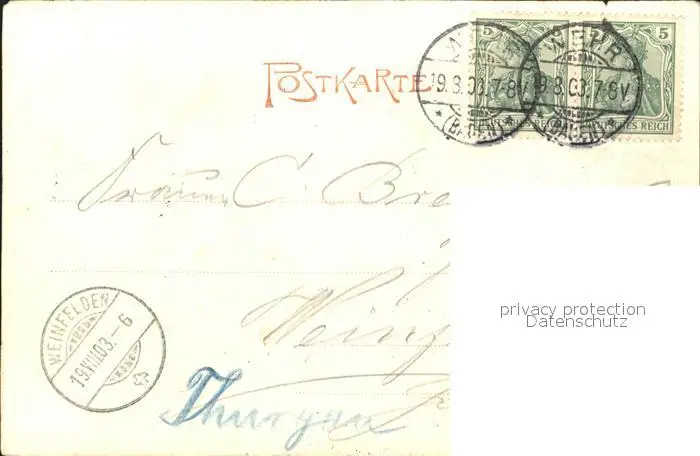 POSTKARTE
5 5
WEHR
19.8.03.7-8V
* (BADEN) *
WEHR
19.8.03.7-8V
* (BADEN) *
DEUTSCHES REICH
DEUTSCHES REICH
C. Bre
privacy protection
Datenschutz
WEINFELDEN
19.VIII.03.-6
Weinf
Thurgau